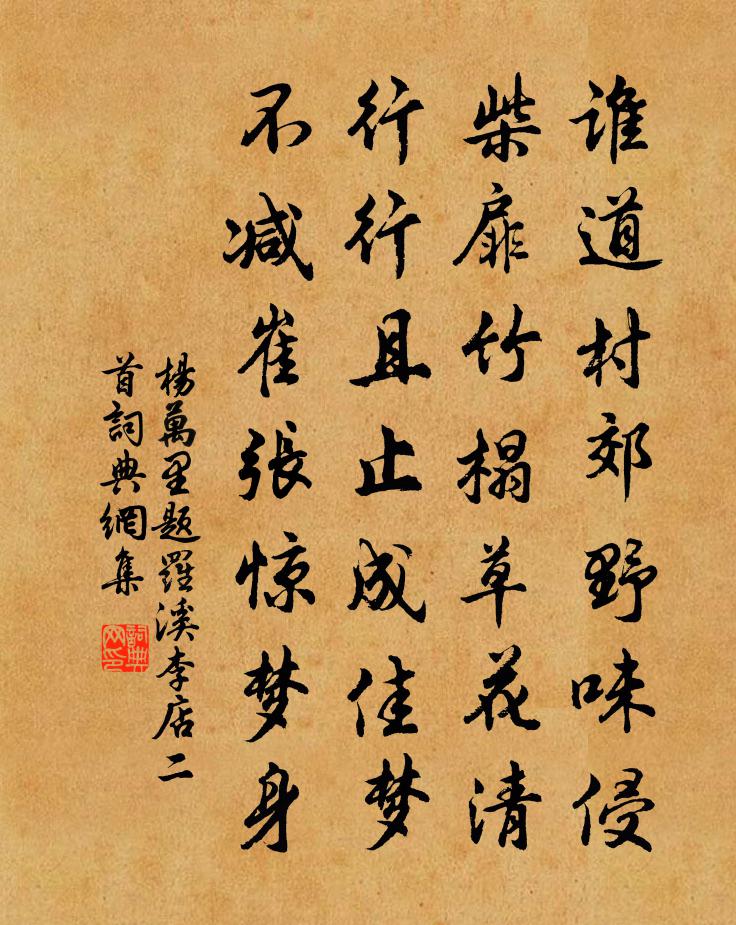 谁道村郊野味侵
柴扉竹榻草花清
行行且止成佳梦
不减崔张惊梦身
楊萬里题羅溪李店二
首詞典網集
詞典
网印